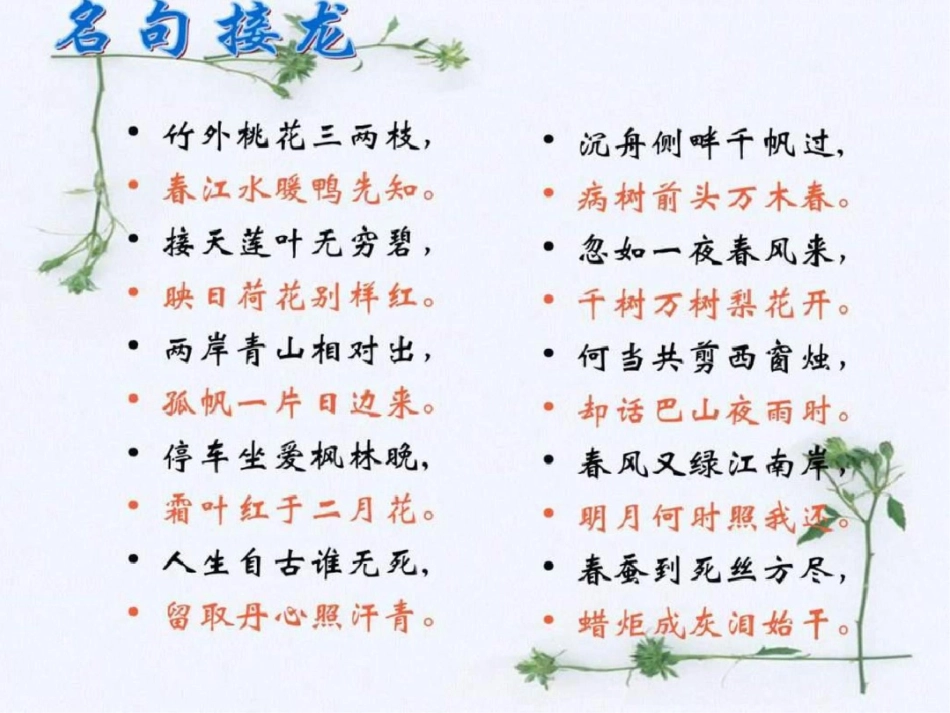 名句接龙
• 竹外桃花三两枝，
• 春江水暖鸭先知。
• 接天莲叶无穷碧，
• 映日荷花别样红。
• 两岸青山相对出，
• 孤帆一片日边来。
• 停车坐爱枫林晚，
• 霜叶红于二月花。
• 人生自古谁无死，
• 留取丹心照汗青。
• 沉舟侧畔千帆过，
• 病树前头万木春。
• 忽如一夜春风来，
• 千树万树梨花开。
• 何当共剪西窗烛，
• 却话巴山夜雨时。
• 春风又绿江南岸，
• 明月何时照我还。
• 春蚕到死丝方尽，
• 蜡炬成灰泪始干。